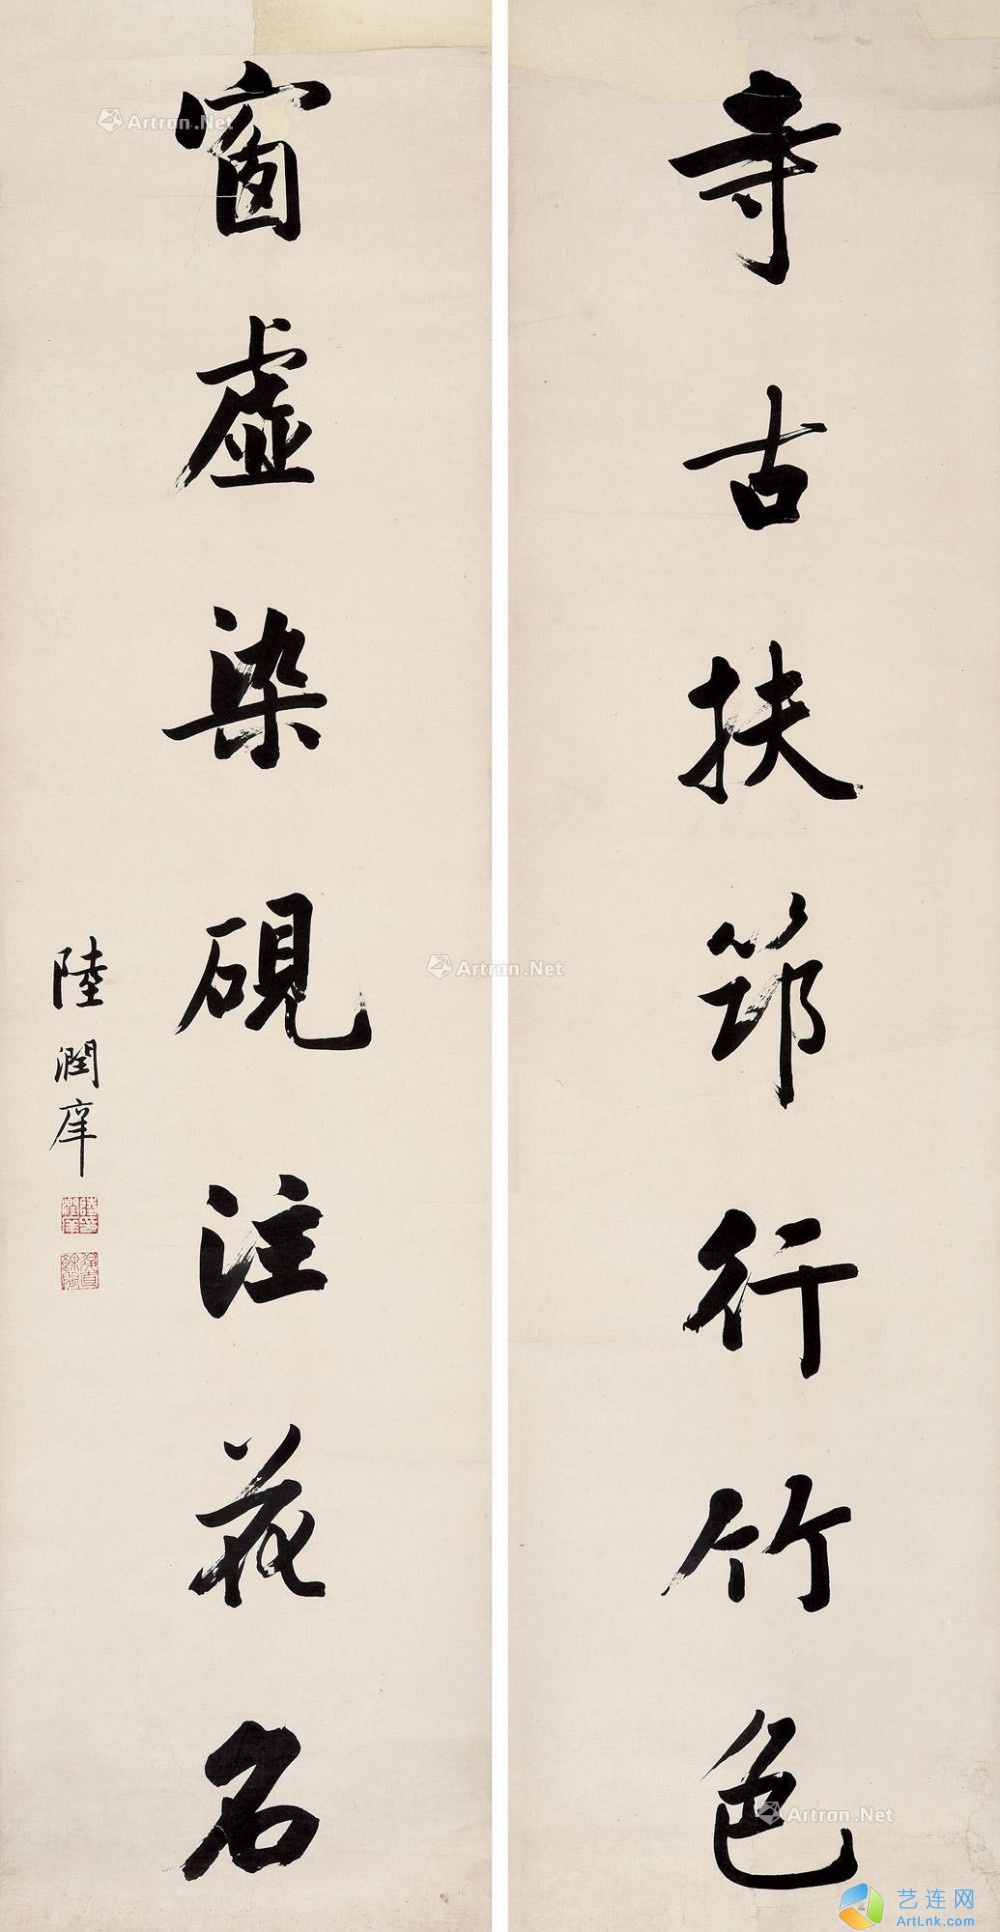 寺古扶筇行竹色
窗虛染硯注花名
陸潤庠
Artron.Net
Artron.Net
Artron.Net
艺连网
ArtLnk.com